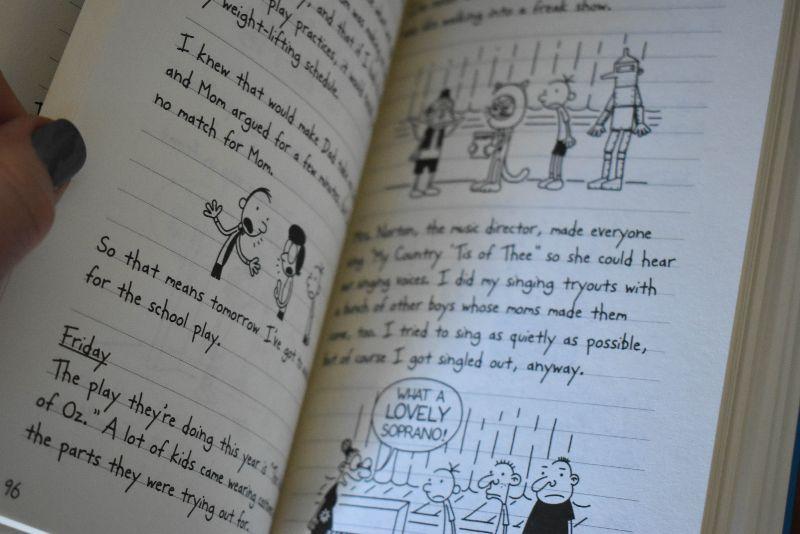 play practices, it would
weight-lifting schedule.
I knew that would make Dad
and Mom argued for a few minutes,
no match for Mom.
So that means tomorrow I've got to
for the school play.
Friday
The play they're doing this year is
of Oz." A lot of kids came wearing
the parts they were trying out for.
96
walking into a freak show.
Norton, the music director, made everyone
"My Country 'Tis of Thee" so she could hear
singing voices. I did my singing tryouts with
bunch of other boys whose moms made them
too. I tried to sing as quietly as possible,
but of course I got singled out, anyway.
WHAT A
LOVELY
SOPRANO!